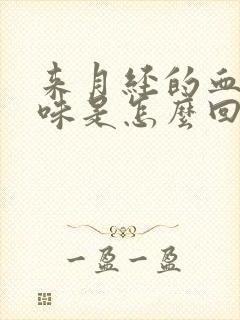 来月经的血
味是怎麼回
一盈一盈